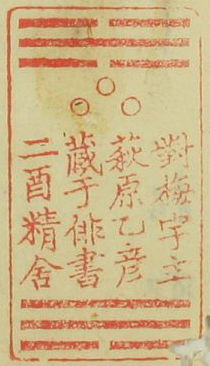 對梅宇主
萩原乙彦
蔵于俳書
二酉精舎